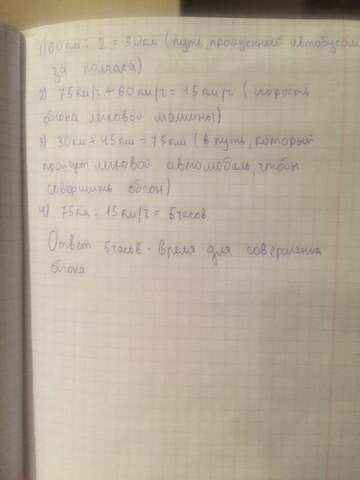 1) 60км : 2 = 30км (путь, пройденный автобусом
за полчаса)
2) 75км/ч + 60км/ч = 15км/ч ( скорость
обгона легковой машины)
3) 30км + 45км = 75км ( в путь, который
пройдет легковой автомобиль, чтобы
совершить обгон)
4) 75км : 15км/ч = 5часов
Ответ 5часов - время для совершения
обгона